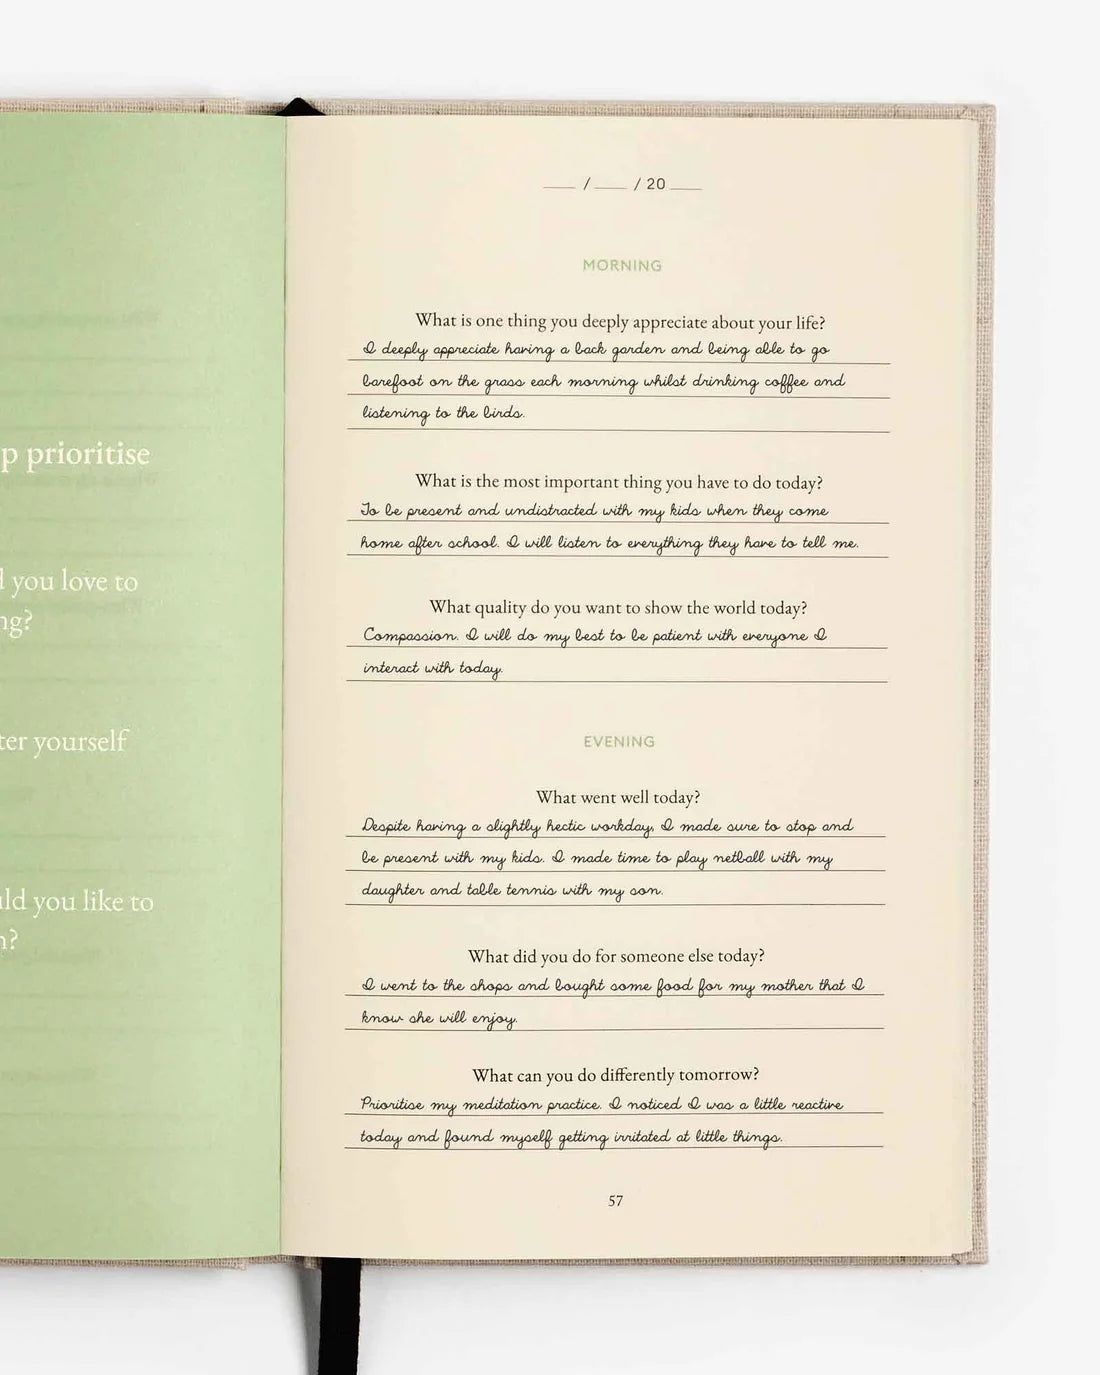 p prioritise
you love to
ng?
ter yourself
ld you like to
?
___ / ___ / 20 ___
MORNING
What is one thing you deeply appreciate about your life?
I deeply appreciate having a back garden and being able to go
barefoot on the grass each morning whilst drinking coffee and
listening to the birds.
What is the most important thing you have to do today?
To be present and undistracted with my kids when they come
home after school. I will listen to everything they have to tell me.
What quality do you want to show the world today?
Compassion. I will do my best to be patient with everyone I
interact with today.
EVENING
What went well today?
Despite having a slightly hectic workday, I made sure to stop and
be present with my kids. I made time to play netball with my
daughter and table tennis with my son.
What did you do for someone else today?
I went to the shops and bought some food for my mother that I
know she will enjoy.
What can you do differently tomorrow?
Prioritise my meditation practice. I noticed I was a little reactive
today and found myself getting irritated at little things.
57